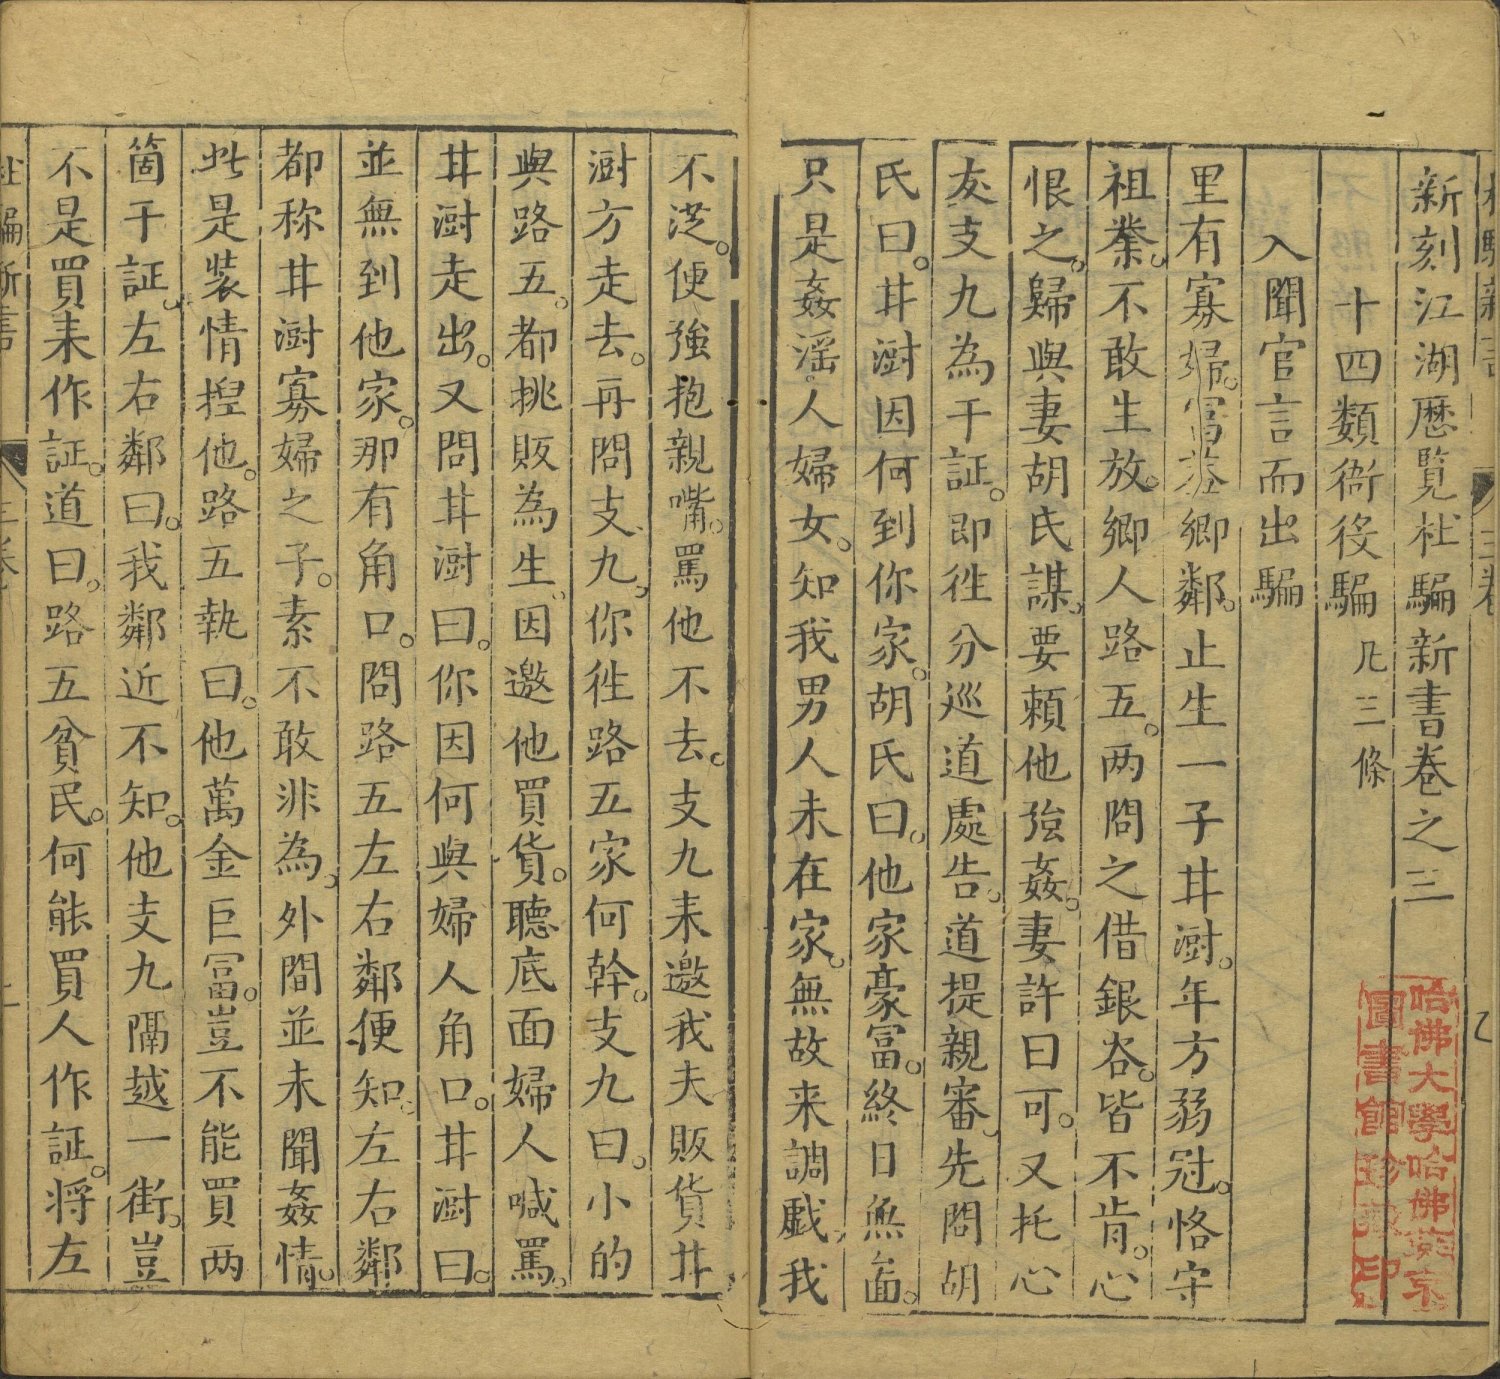 新刻江湖歷覽杜騙新書卷之三
十四類衙役騙 凡三條
入聞官言而出騙
里有寡婦。富葢鄉鄰。止生一子井澍。年方弱冠。恪守
祖業。不敢生放。鄉人路五。两問之借銀谷。皆不肯。心
恨之。歸與妻胡氏謀。要賴他強姦。妻許曰可。又托心
友支九為干証。即徃分巡道處告。道提親審。先問胡
氏曰。井澍因何到你家。胡氏曰。他家豪冨。終日無面。
只是姦滛人婦女。知我男人未在家。無故来調戯我
不從。便強抱親嘴。罵他不去。支九来邀我夫販貨井
澍方走去。再問支九。你徃路五家何幹。支九曰。小的
與路五。都挑販為生。因邀他買貨。聽底面婦人喊罵。
井澍走出。又問井澍曰。你因何與婦人角口。井澍曰。
並無到他家。那有角口。問路五左右鄰便知。左右鄰
都称井澍寡婦之子。素不敢非為。外間並未聞姦情。
此是裝情揑他。路五執曰。他萬金巨冨。豈不能買两
箇干証。左右鄰曰。我鄰近不知。他支九隔越一街。豈
不是買来作証。道曰。路五貧民。何能買人作証。将左
杜騙新書
三卷
哈佛大學哈佛燕京
圖書館珍藏印